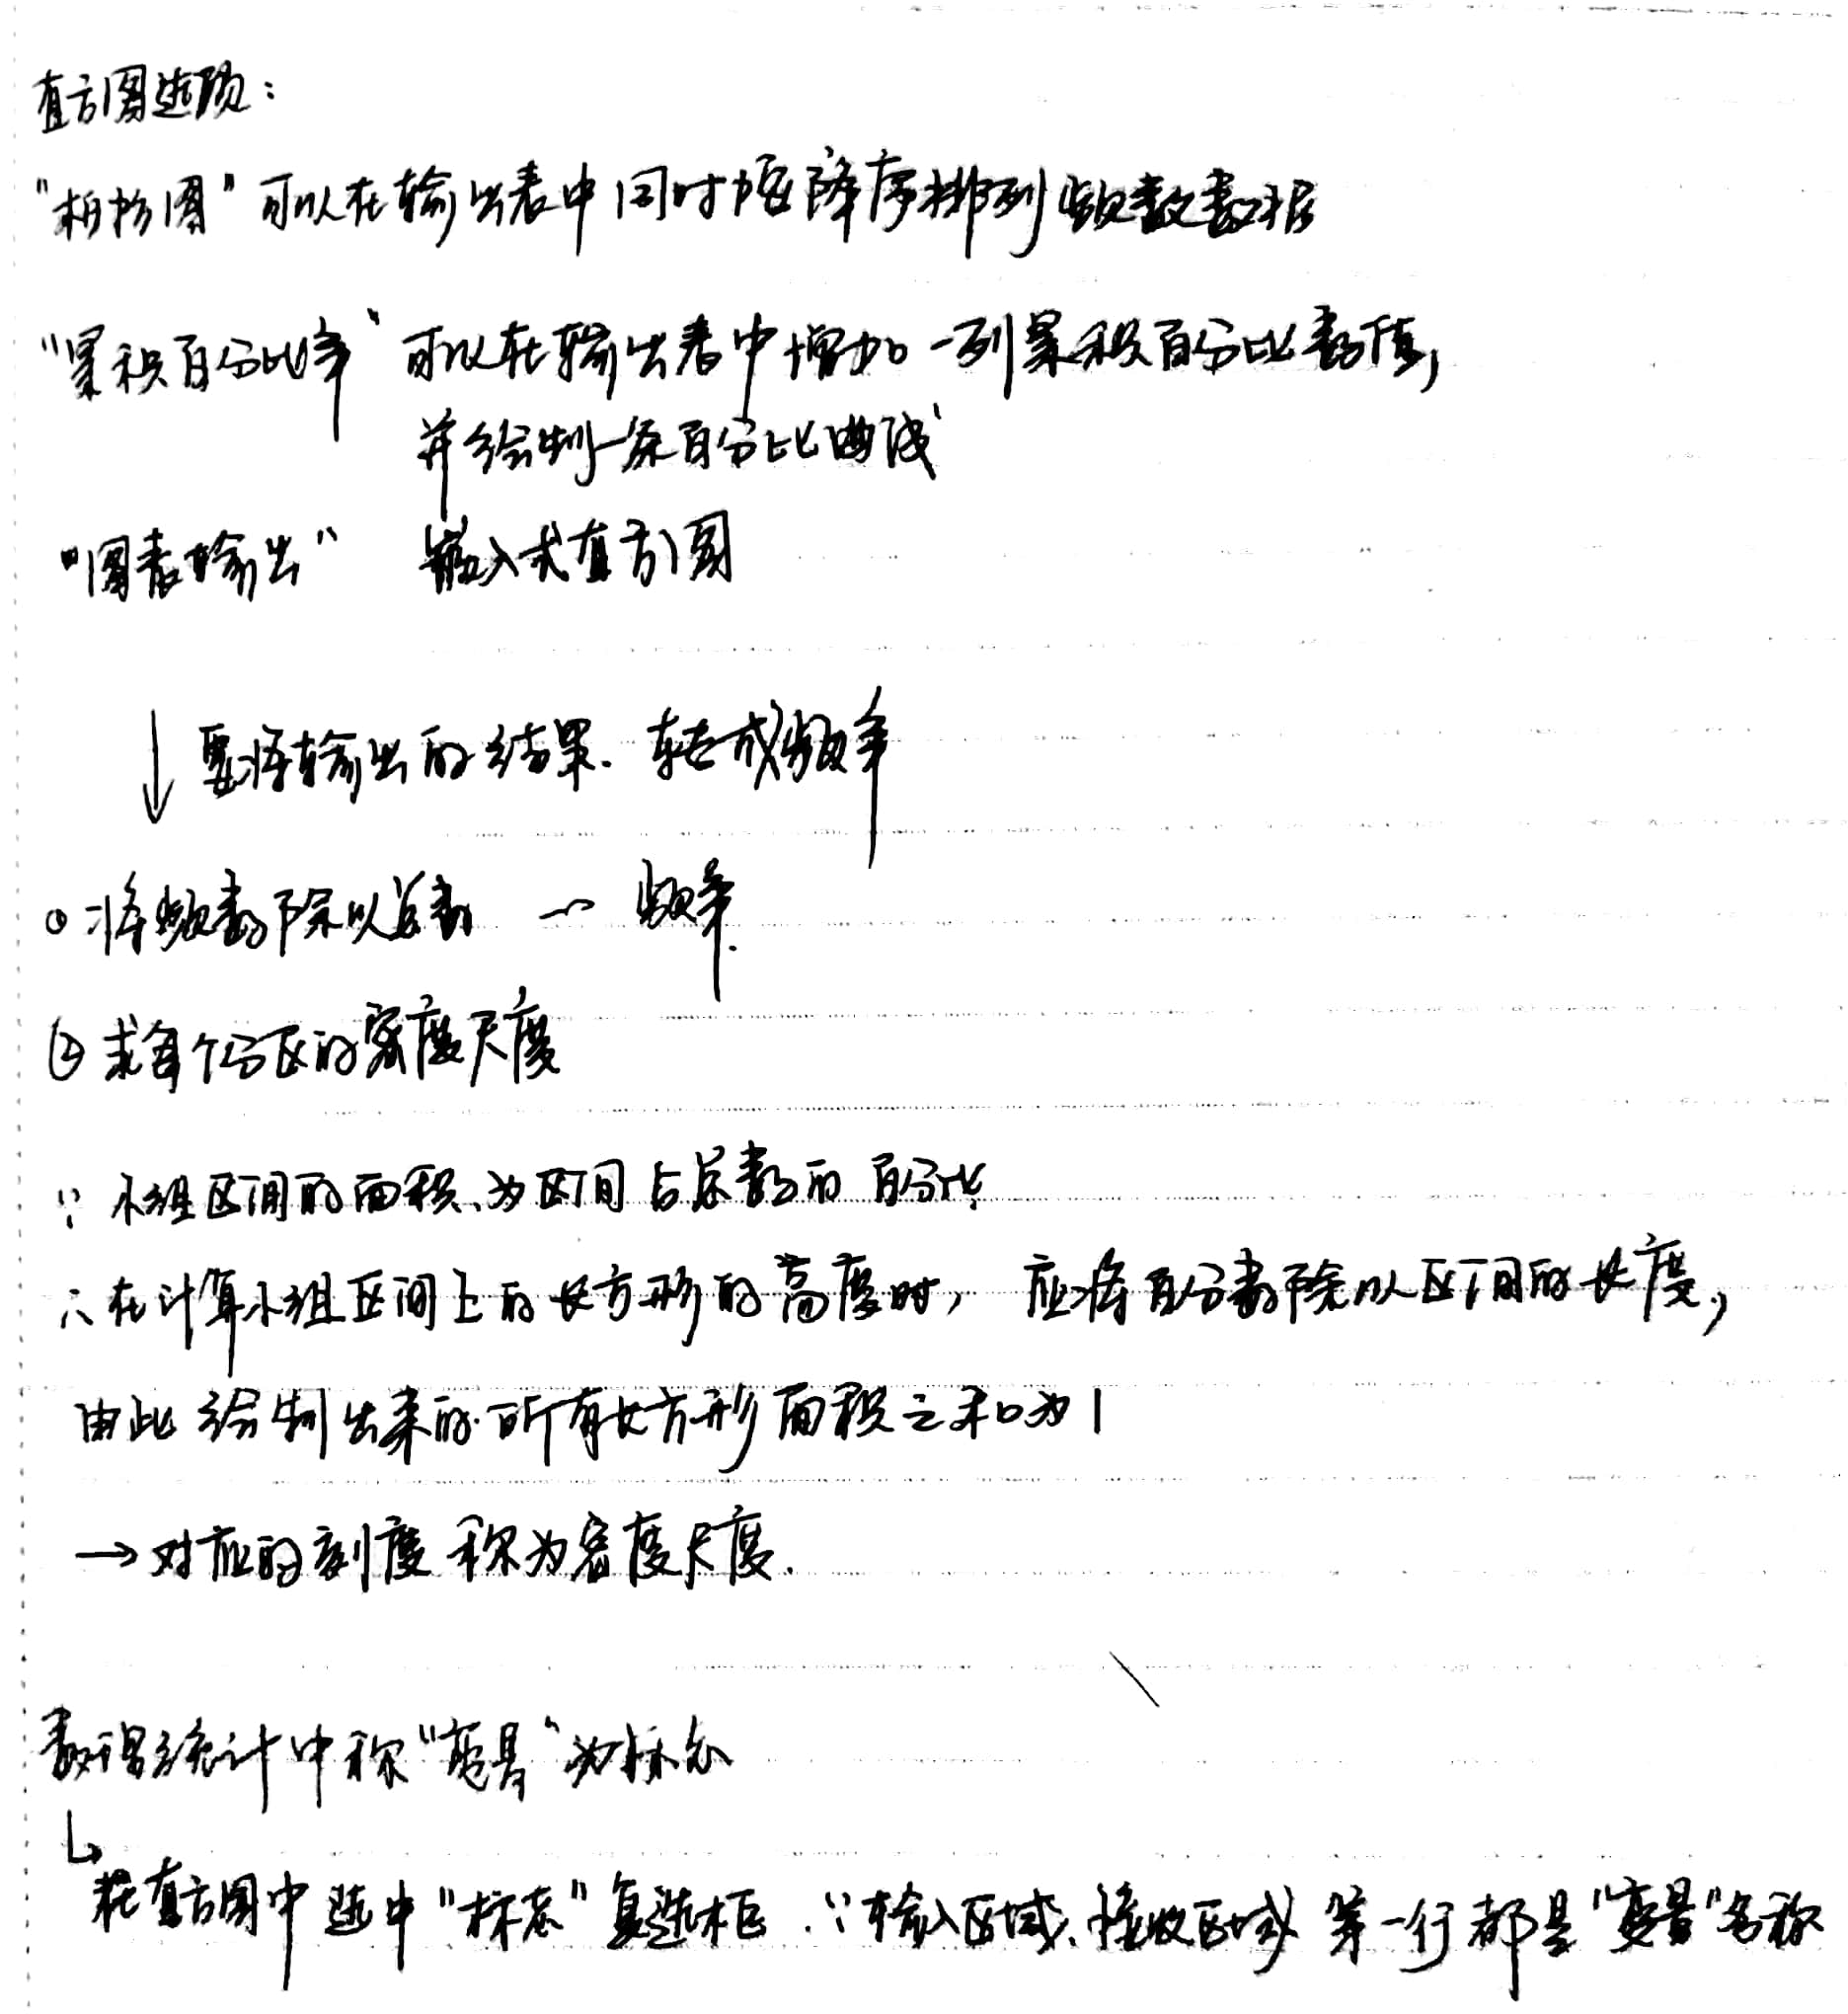 直方图选项：
"柏拉图" 可以在输出表中同时按降序排列频数数据
"累积百分比率" 可以在输出表中增加一列累积百分比数值，
并绘制一条百分比曲线
"图表输出" 嵌入式直方图
↓ 要将输出的结果、转成频率
① 将频数除以总数 → 频率.
② 求每个分区的密度尺度
∵ 小组区间的面积、为区间占总数的百分比
∴ 在计算小组区间上的长方形的高度时，应将百分数除以区间的长度，
由此绘制出来的所有长方形面积之和为1
→ 对应的刻度称为密度尺度.
数理统计中称"变量"为标志
↳ 在直方图中选中"标志"复选框. ∵ 输入区域、接收区域 第一行都是"变量"名称